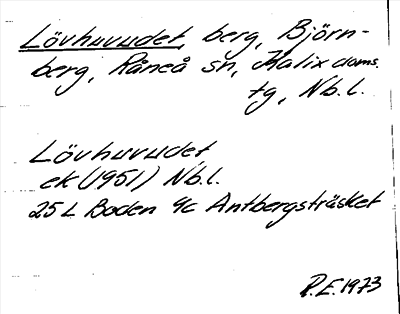 Lövhuvudet, berg, Björn-
berg, Råneå sn, Kalix doms.
tg, Nb.l.
Lövhuvudet
ek (1951) Nb.l.
25 L Boden 9c Antbergsträsket
R.E. 1973